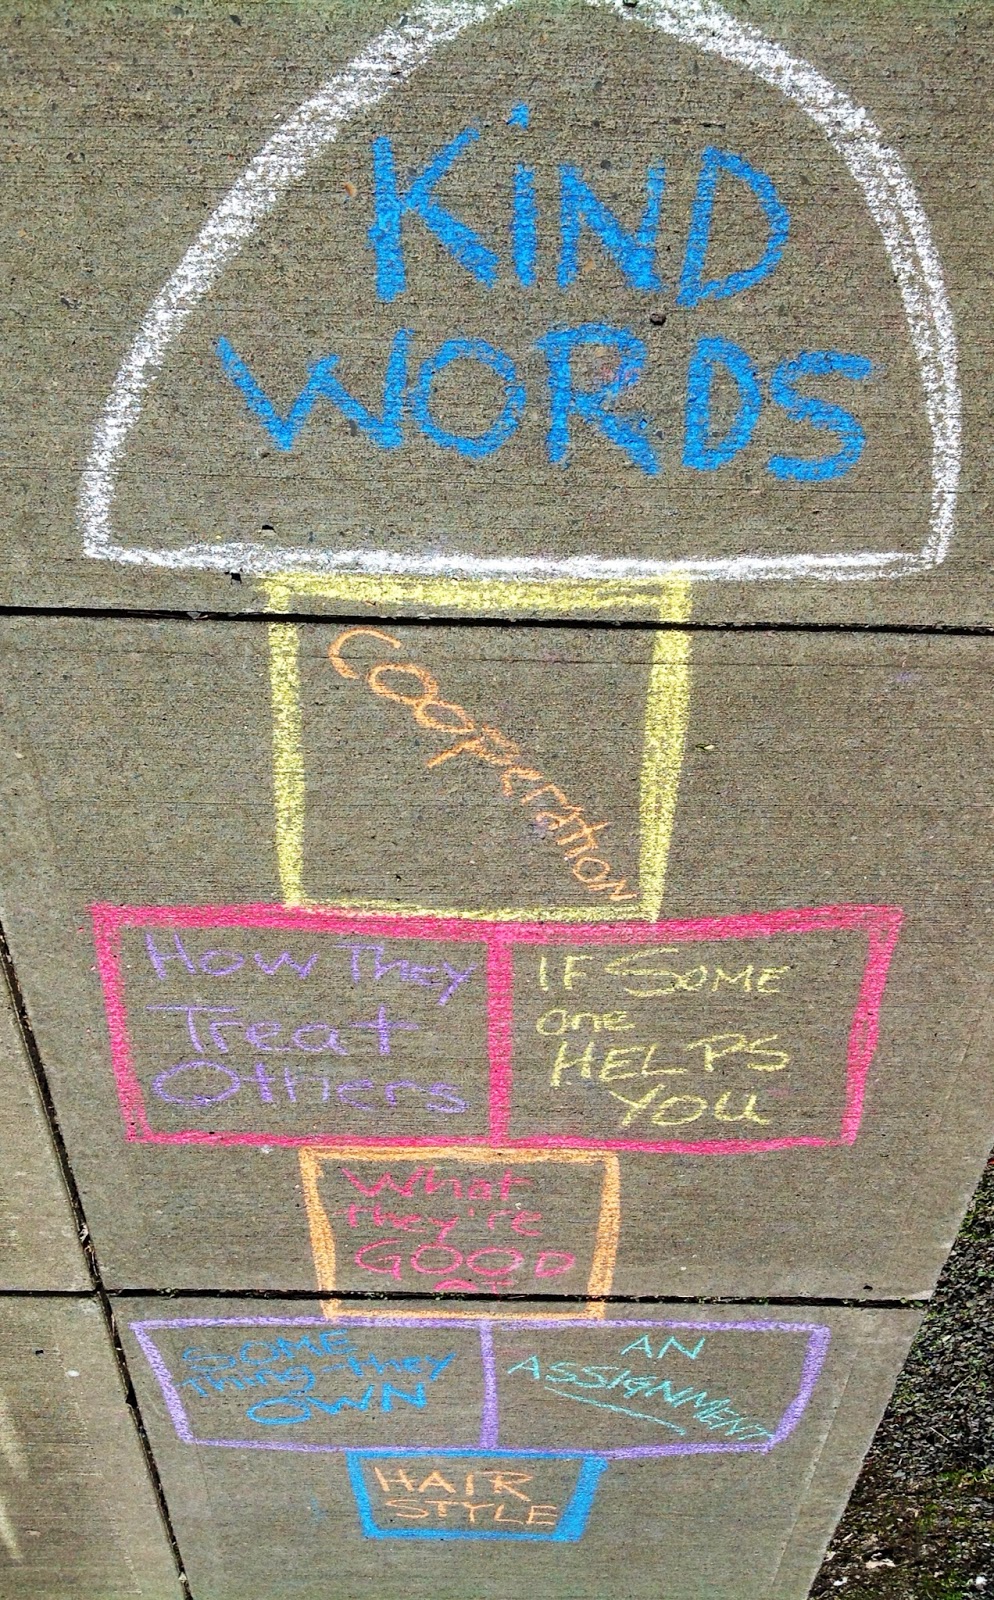 KiND
WORDS
Cooperation
How They
Treat
Others
IF SOME
one
HELPS
YOU
What
they're
GOOD
AT
SOME
Thing they
OWN
AN
ASSIGNMENT
HAIR
STYLE